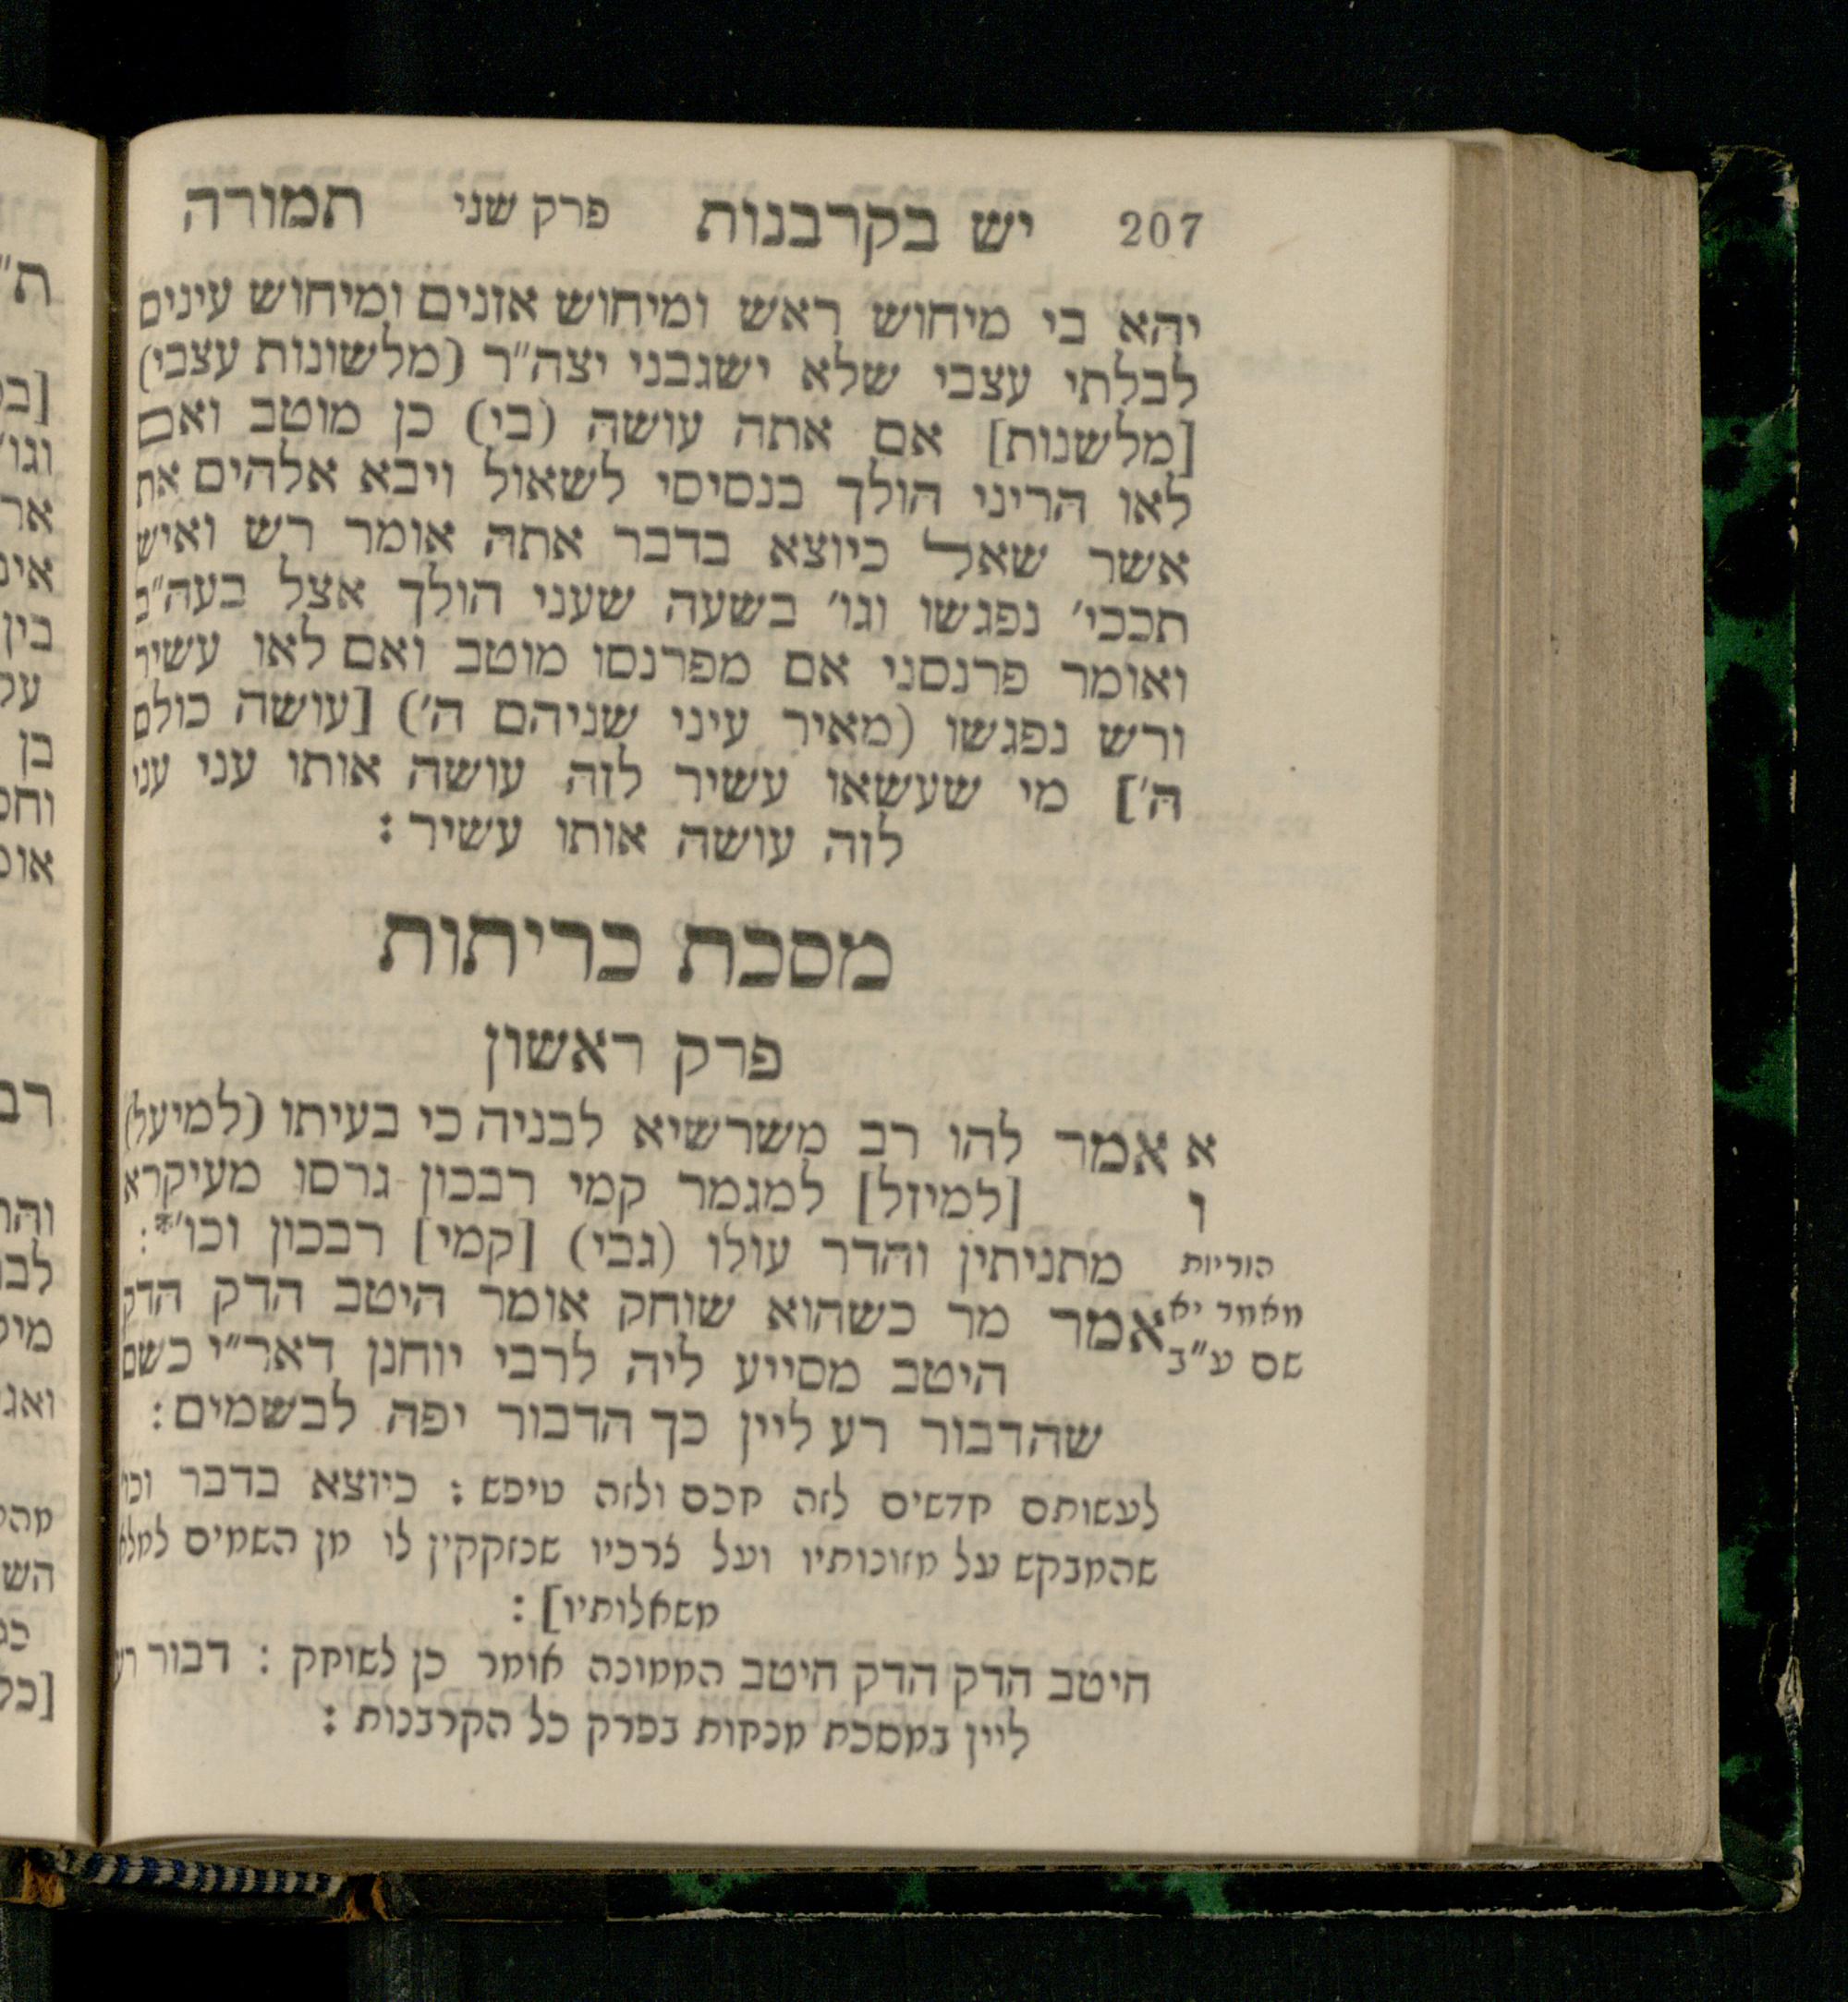 207 יש בקרבנות פרק שני תמורה
יהא בי מיחוש ראש ומיחוש אזנים ומיחוש עינים
לבלתי עצבי שלא ישגבני יצה״ר (מלשונות עצבי)
[מלשנות] אם אתה עושה (בי) כן מוטב ואם
לאו הריני הולך בנסיסי לשאול ויבא אלהים את
אשר שאל כיוצא בדבר אתה אומר רש ואיש
תככי׳ נפגשו וגו׳ בשעה שעני הולך אצל בעה״ב
ואומר פרנסני אם מפרנסו מוטב ואם לאו עשיר
ורש נפגשו (מאיר עיני שניהם ה׳) [עושה כולם
ה׳] מי שעשאו עשיר לזה עושה אותו עני עני
לזה עושה אותו עשיר :
מסכת כריתות
פרק ראשון
א אמר להו רב משרשיא לבניה כי בעיתו (למיעל)
ו [למיזל] למגמר קמי רבכון גרסו מעיקרא
הוריות מתניתין והדר עולו (גבי) [קמי] רבכון וכו׳*:
מאמר יא אמר מר כשהוא שוחק אומר היטב הדק הדק
שם ע״ב היטב מסייע ליה לרבי יוחנן דאר״י כשם
שהדבור רע ליין כך הדבור יפה לבשמים:
לעשותם חדשים לזה חכם ולזה טיפש : כיוצא בדבר וכו׳
שהמבקש על מזונותיו ועל צרכיו שנזקקין לו מן השמים למלא
משאלותיו] :
היטב הדק הדק היטב הממונה אומר כן לשוחק : דבור רע
ליין במסכת מנחות בפרק כל הקרבנות :